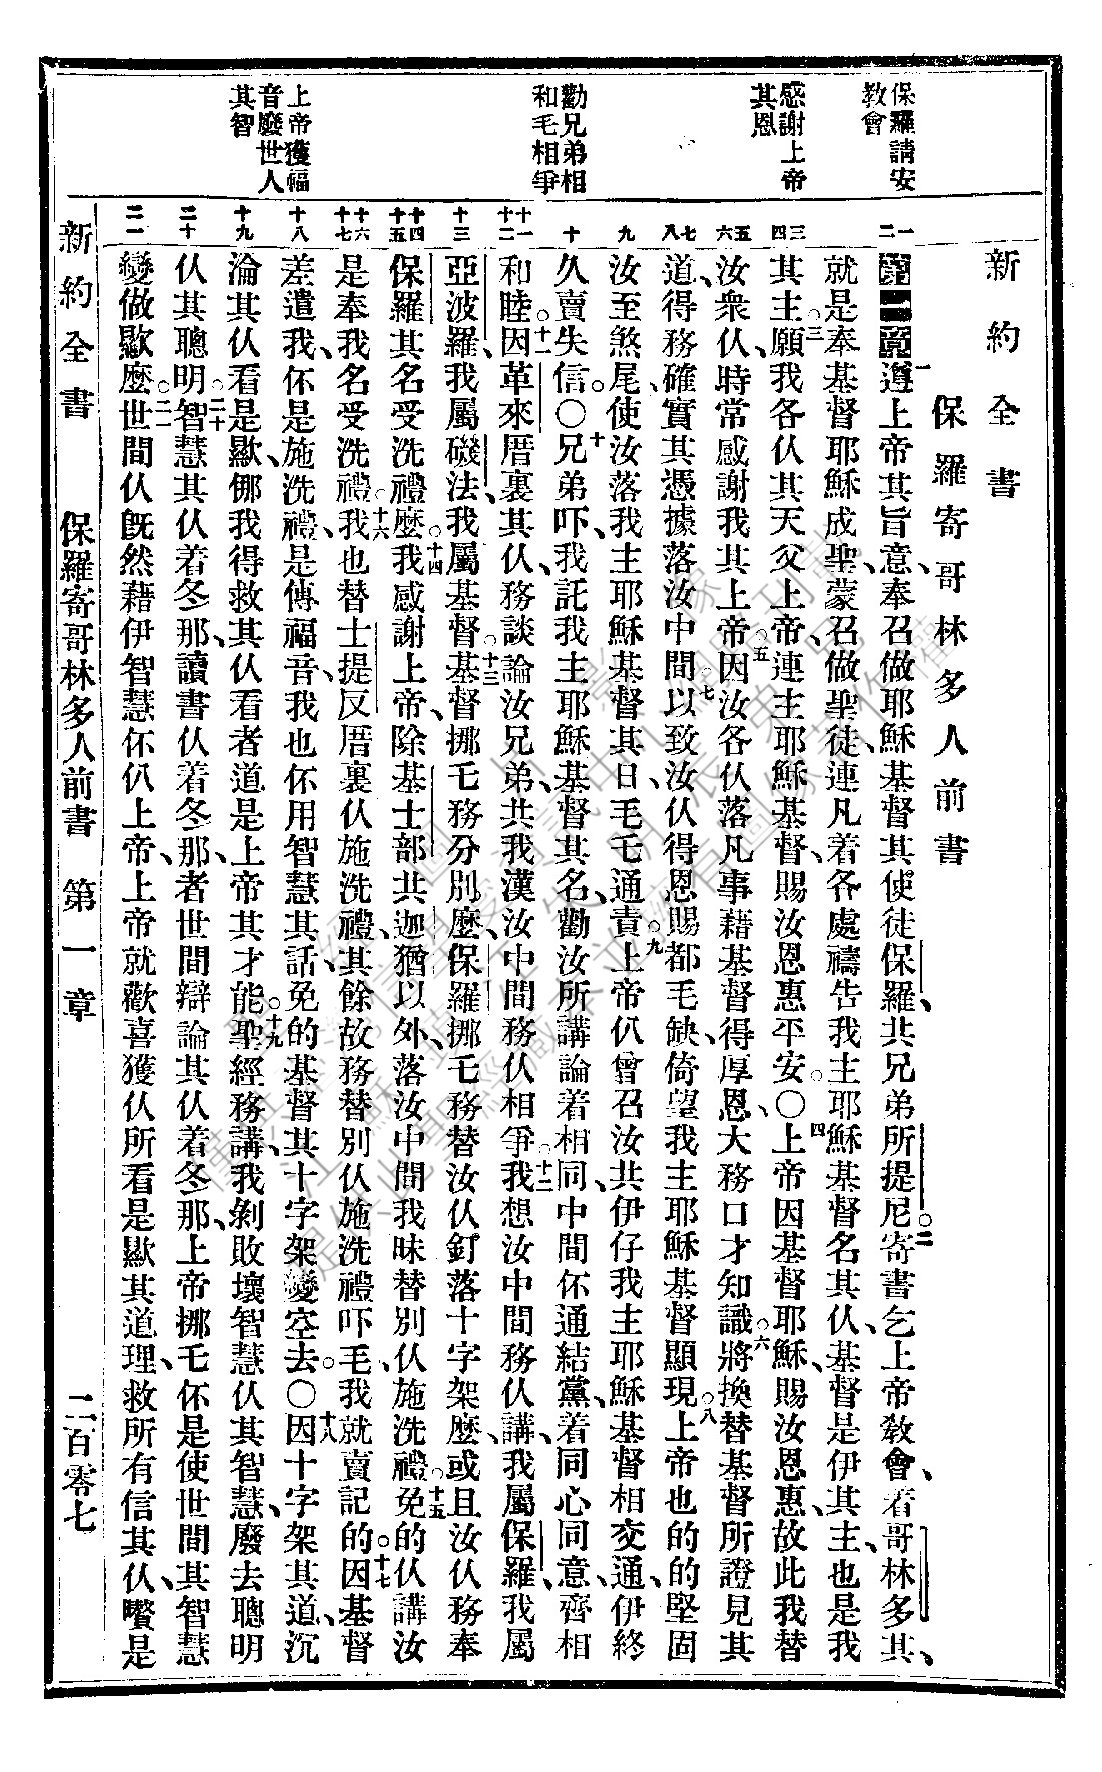 新約全書
保羅寄哥林多人前書
保羅請安
教會
感謝上帝
其恩
勸兄弟相
和毛相爭
上帝獲福
音廢世人
其智
一
二
三
四
五
六
七
八
九
十
十一
十二
十三
十四
十五
十六
十七
十八
十九
二十
二一
第一章一遵上帝其旨意、奉召做耶穌基督其使徒保羅、共兄弟所提尼。二寄書乞上帝敎會、若哥林多其、
就是奉基督耶穌成聖、蒙召做聖徒、連凡着各處禱告我主耶穌基督名其仈、基督是伊其主、也是我
其主。三願我各仈其天父上帝、連主耶穌基督、賜汝恩惠平安。〇四上帝因基督耶穌、賜汝恩惠、故此我替
汝衆仈、時常感謝我其上帝。五因汝各仈落凡事藉基督得厚恩、大務口才知識。六將換替基督所證見其
道、得務確實其憑據落汝中間。七以致汝仈得恩賜都毛缺、倚望我主耶穌基督顯現。八上帝也的的堅固
汝至煞尾、使汝落我主耶穌基督其日、毛乇通責。九上帝仈曾召汝共伊仔我主耶穌基督相交通、伊終
久賣失信。〇十兄弟吓、我託我主耶穌基督其名、勸汝所講論着相同、中間伓通結黨、着同心同意、齊相
和睦。十一因革來厝裏其仈、務談論汝兄弟、共我漢汝中間務仈相爭。十二我想汝中間務仈講、我屬保羅、我屬
亞波羅、我屬磯法、我屬基督。十三基督挪乇務分別麽、保羅挪乇務替汝仈釘落十字架麽、或且汝仈務奉
保羅其名受洗禮麽。十四我感謝上帝、除基士部共迦猶以外、落汝中間我昧替別仈施洗禮。十五免的仈講汝
是奉我名受洗禮。十六我也替士提反厝裏仈施洗禮、其餘故務替別仈施洗禮吓毛、我就賣記的。十七因基督
差遣我、伓是施洗禮、是傳福音、我也伓用智慧其話、免的基督其十字架變空去。〇十八因十字架其道、沉
淪其仈看是歞、㑚我得救其仈看者道是上帝其才能。十九聖經務講、我剝敗壞智慧仈其智慧、廢去聰明
仈其聰明。二十智慧其仈着冬那、讀書仈着冬那、者世間辯論其仈着冬那、上帝挪乇伓是使世間其智慧
變做歞麽。二一世間仈旣然藉伊智慧伓仈上帝、上帝就歡喜獲仈所看是歞其道理、救所有信其仈、嚽是
新約全書　保羅寄哥林多人前書　第一章　二百零七